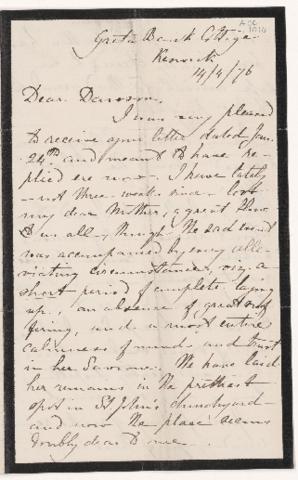 Greta Bank Cottage.
Keswick
14/4/76
Dear Dawson,
I was very pleased
to receive your letter dated Jan.
24th and meant to have re-
plied ere now. I have lately
—not three weeks since—lost
my dear Mother, a great blow
to us all, though the sad event
was accompanied by every alle-
viating circumstance, viz, a
short period of complete laying
up, an absence of great suf-
fering, and a most entire
calmness of mind and trust
in her Saviour. We have laid
her remains in the prettiest
spot in St John's churchyard—
and now the place seems
doubly dear to me.